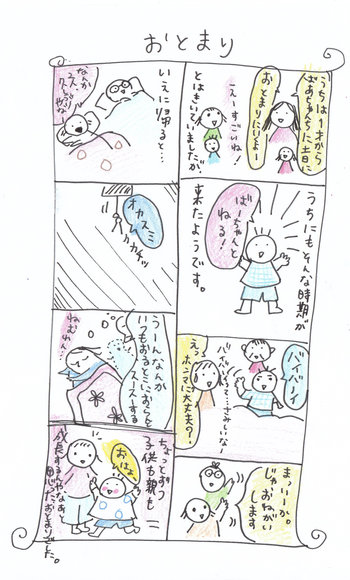 おとまり
うちは1才から
ばあちゃんちに土日に
おとまりにいくよー
えーすごいね!
とはきいていましたが、
うちにもそんな時期が
来たようです。
ばーちゃんと
ねる!
バイバイ
バイバイって…さみしいなー
えっ
ホンマに大丈夫の?
ま、いーか。
じゃ、おねがい
します
いえに帰ると…
なんか
オヤスミ
カチッ
うーんなんか
いつもおるとこにおらんと
スースーする
ねむれん…
ちょっとずつ
子供も親も
おはよ
成長するんだなあと
思じたおとまりでした。